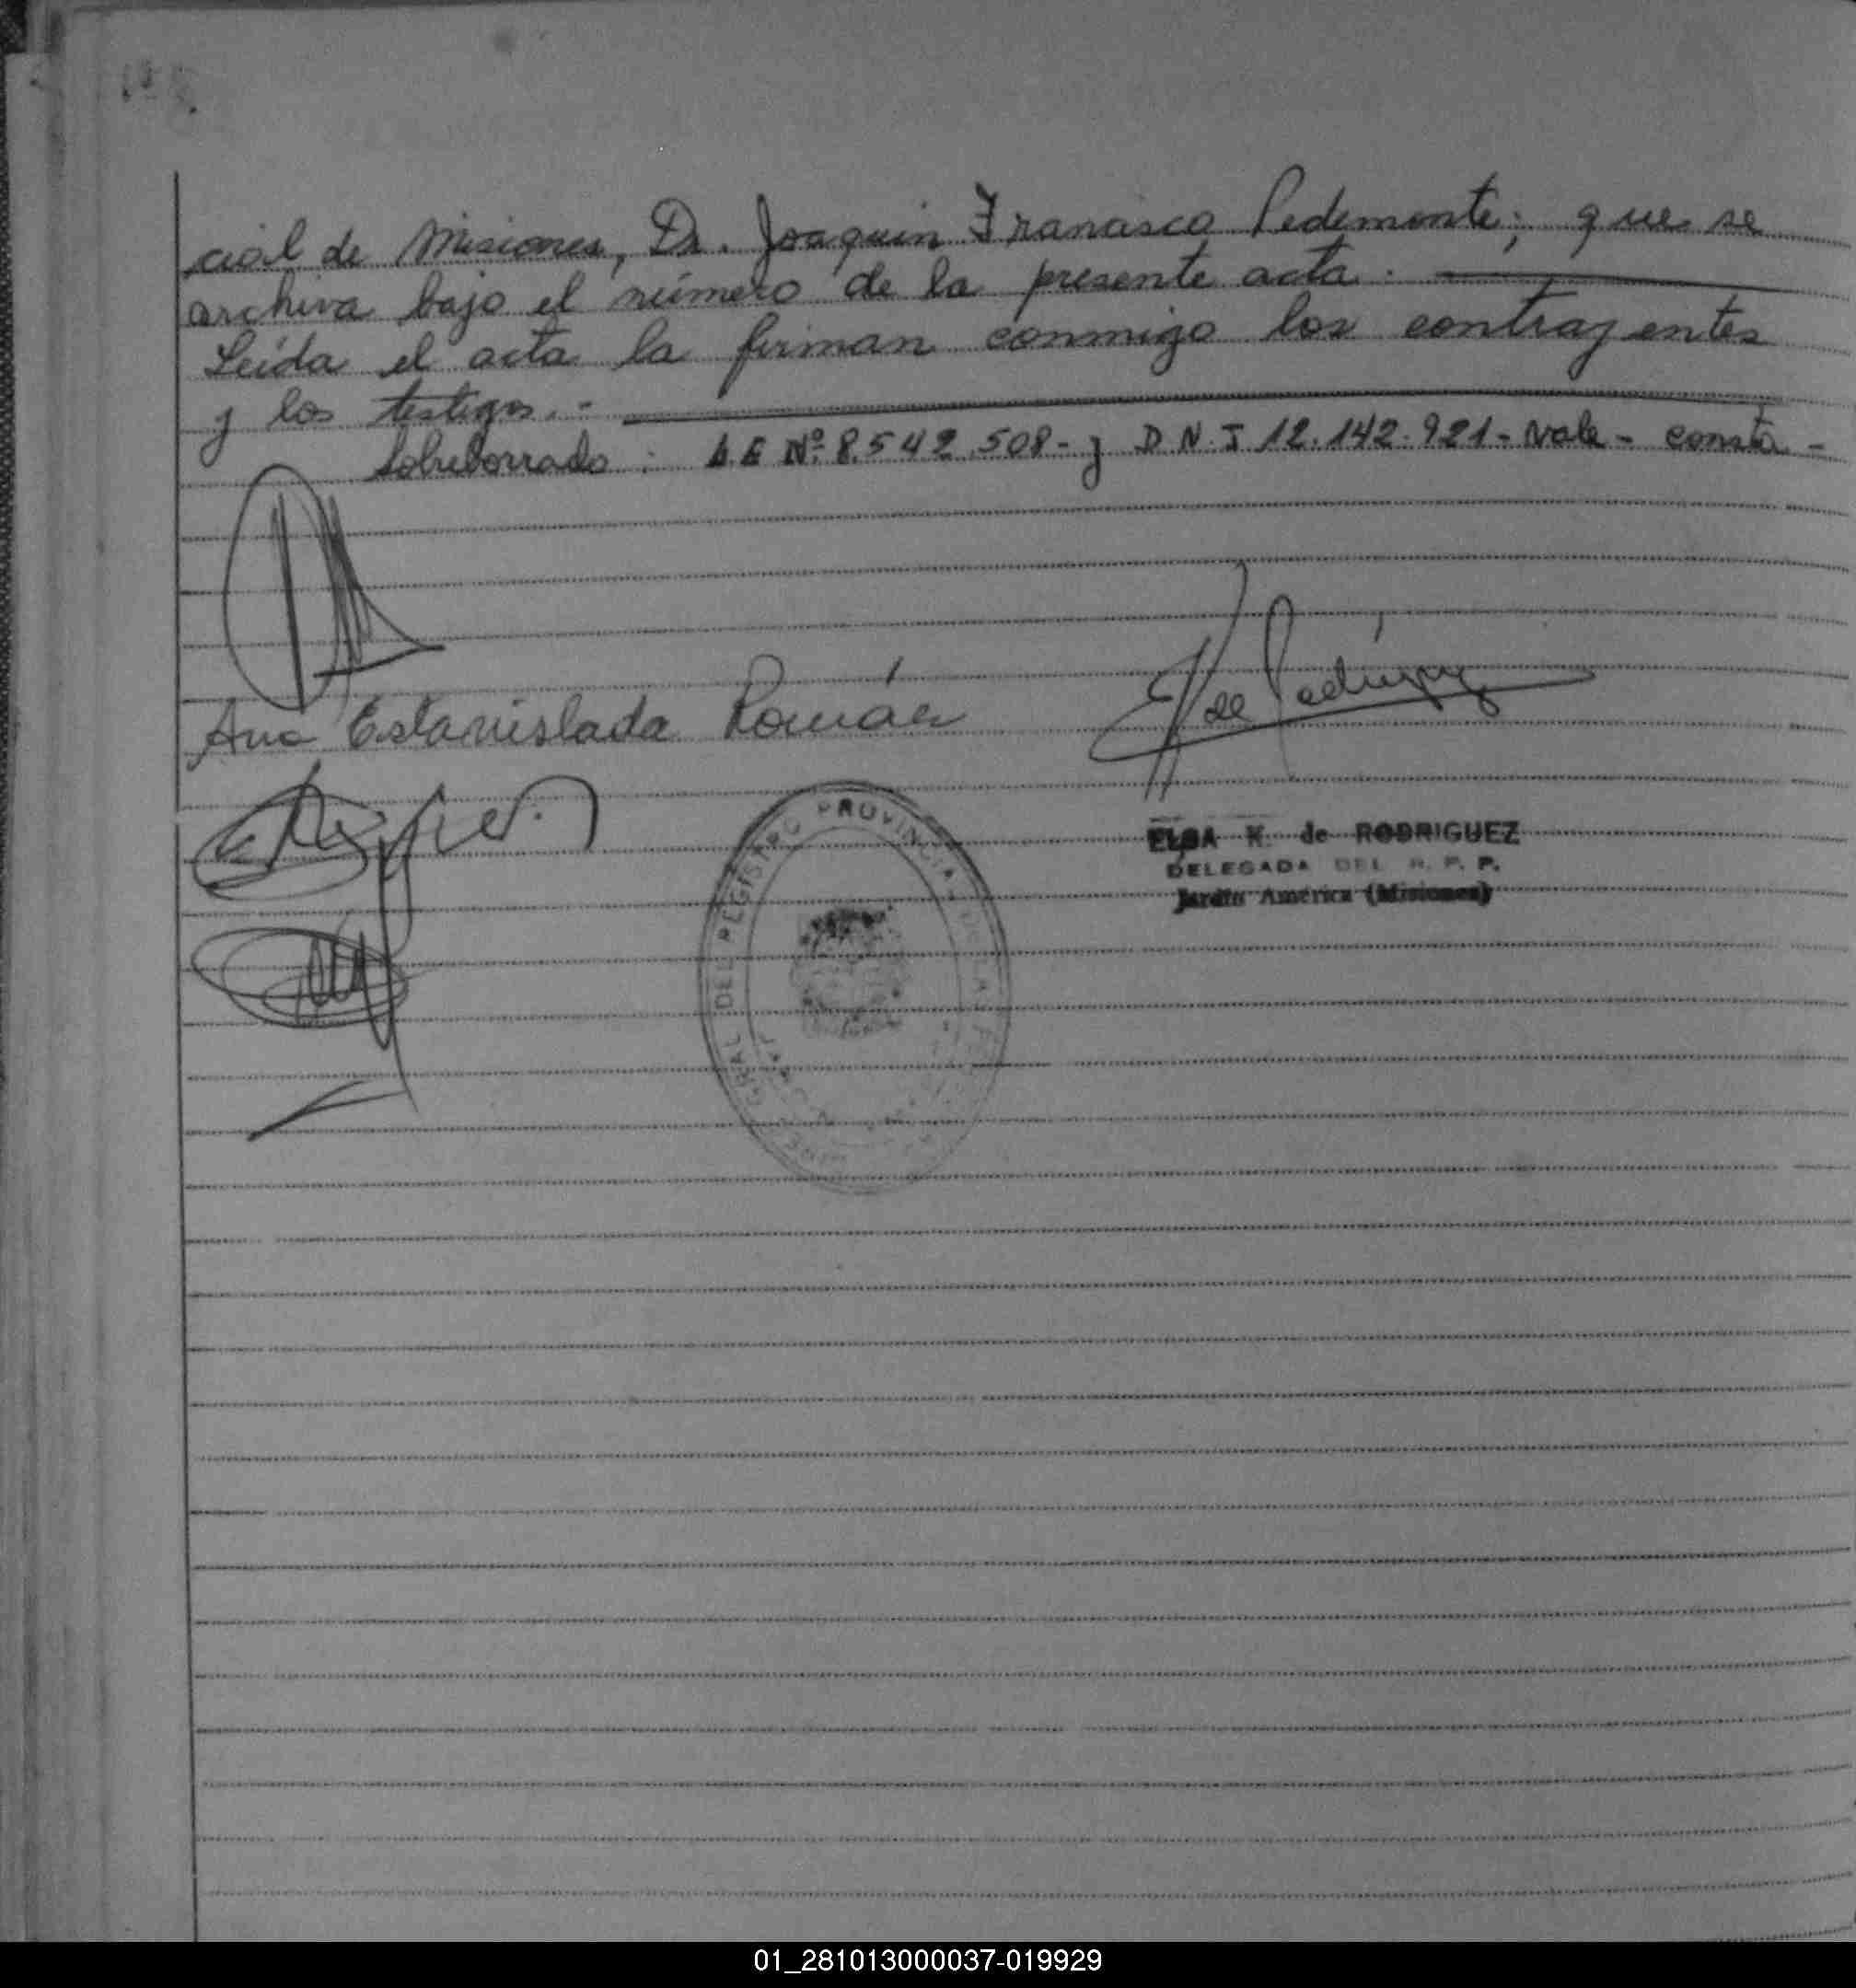 cial de Misiones, Dr. Joaquin Francisco Pedemonte; que se
archiva bajo el número de la presente acta.
Leída el acta la firman conmigo los contrayentes
y los testigos.-
Sobreborrado: L.E Nº 8.542.508- y D.N.I 12.142.921- Vale - consta -
Ana Estanislada Román
de Rodríguez
ELSA K. de RODRIGUEZ
DELEGADA DEL R. P. P.
Jardín América (Misiones)
GRAL DEL REGISTRO PROVINCIAL DE LA
01_281013000037-019929